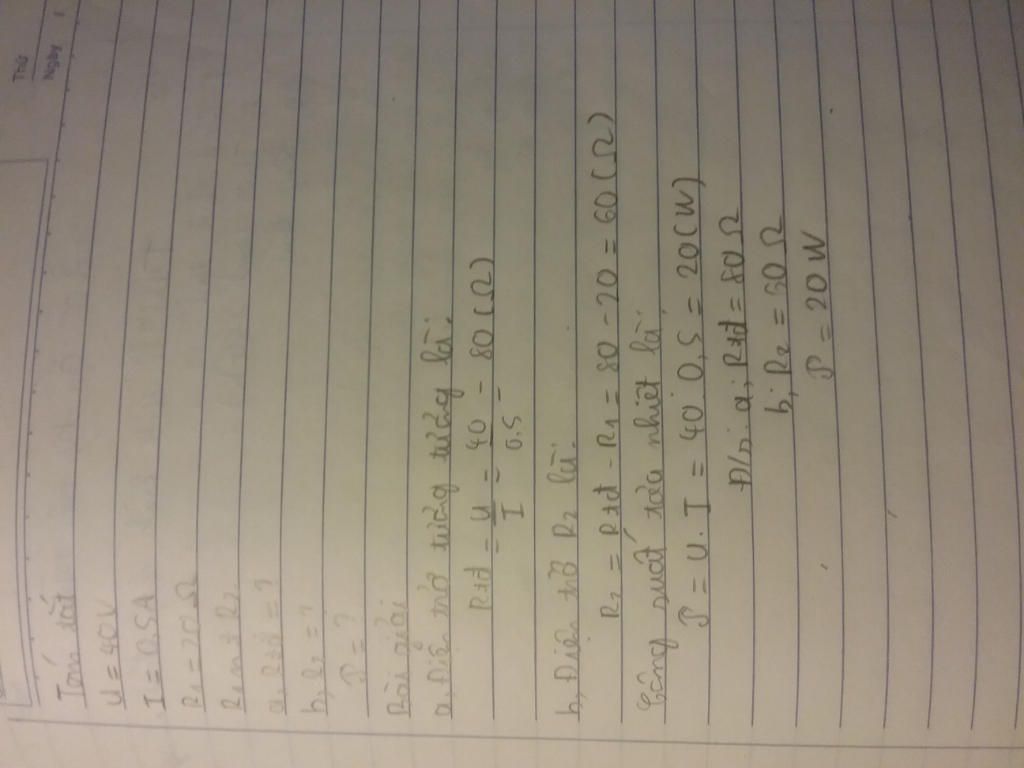 Thứ
Ngày
Tóm tắt
U = 40V
I = 0,5A
R1 = 20Ω
R1 nt R2
a, Rtđ = ?
b, R2 = ?
P = ?
Bài giải
a, Điện trở tương tương là:
Rtđ = U/I = 40/0,5 = 80(Ω)
b, Điện trở R2 là:
R2 = Rtđ - R1 = 80 - 20 = 60(Ω)
Công suất tỏa nhiệt là:
P = U.I = 40.0,5 = 20(W)
Đ/s: a; Rtđ = 80Ω
b; R2 = 60Ω
P = 20W